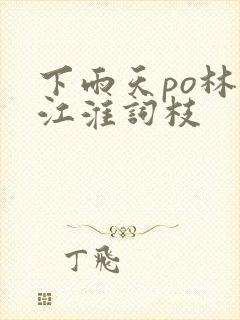 下雨天po林
江淮詞枝
丁飛